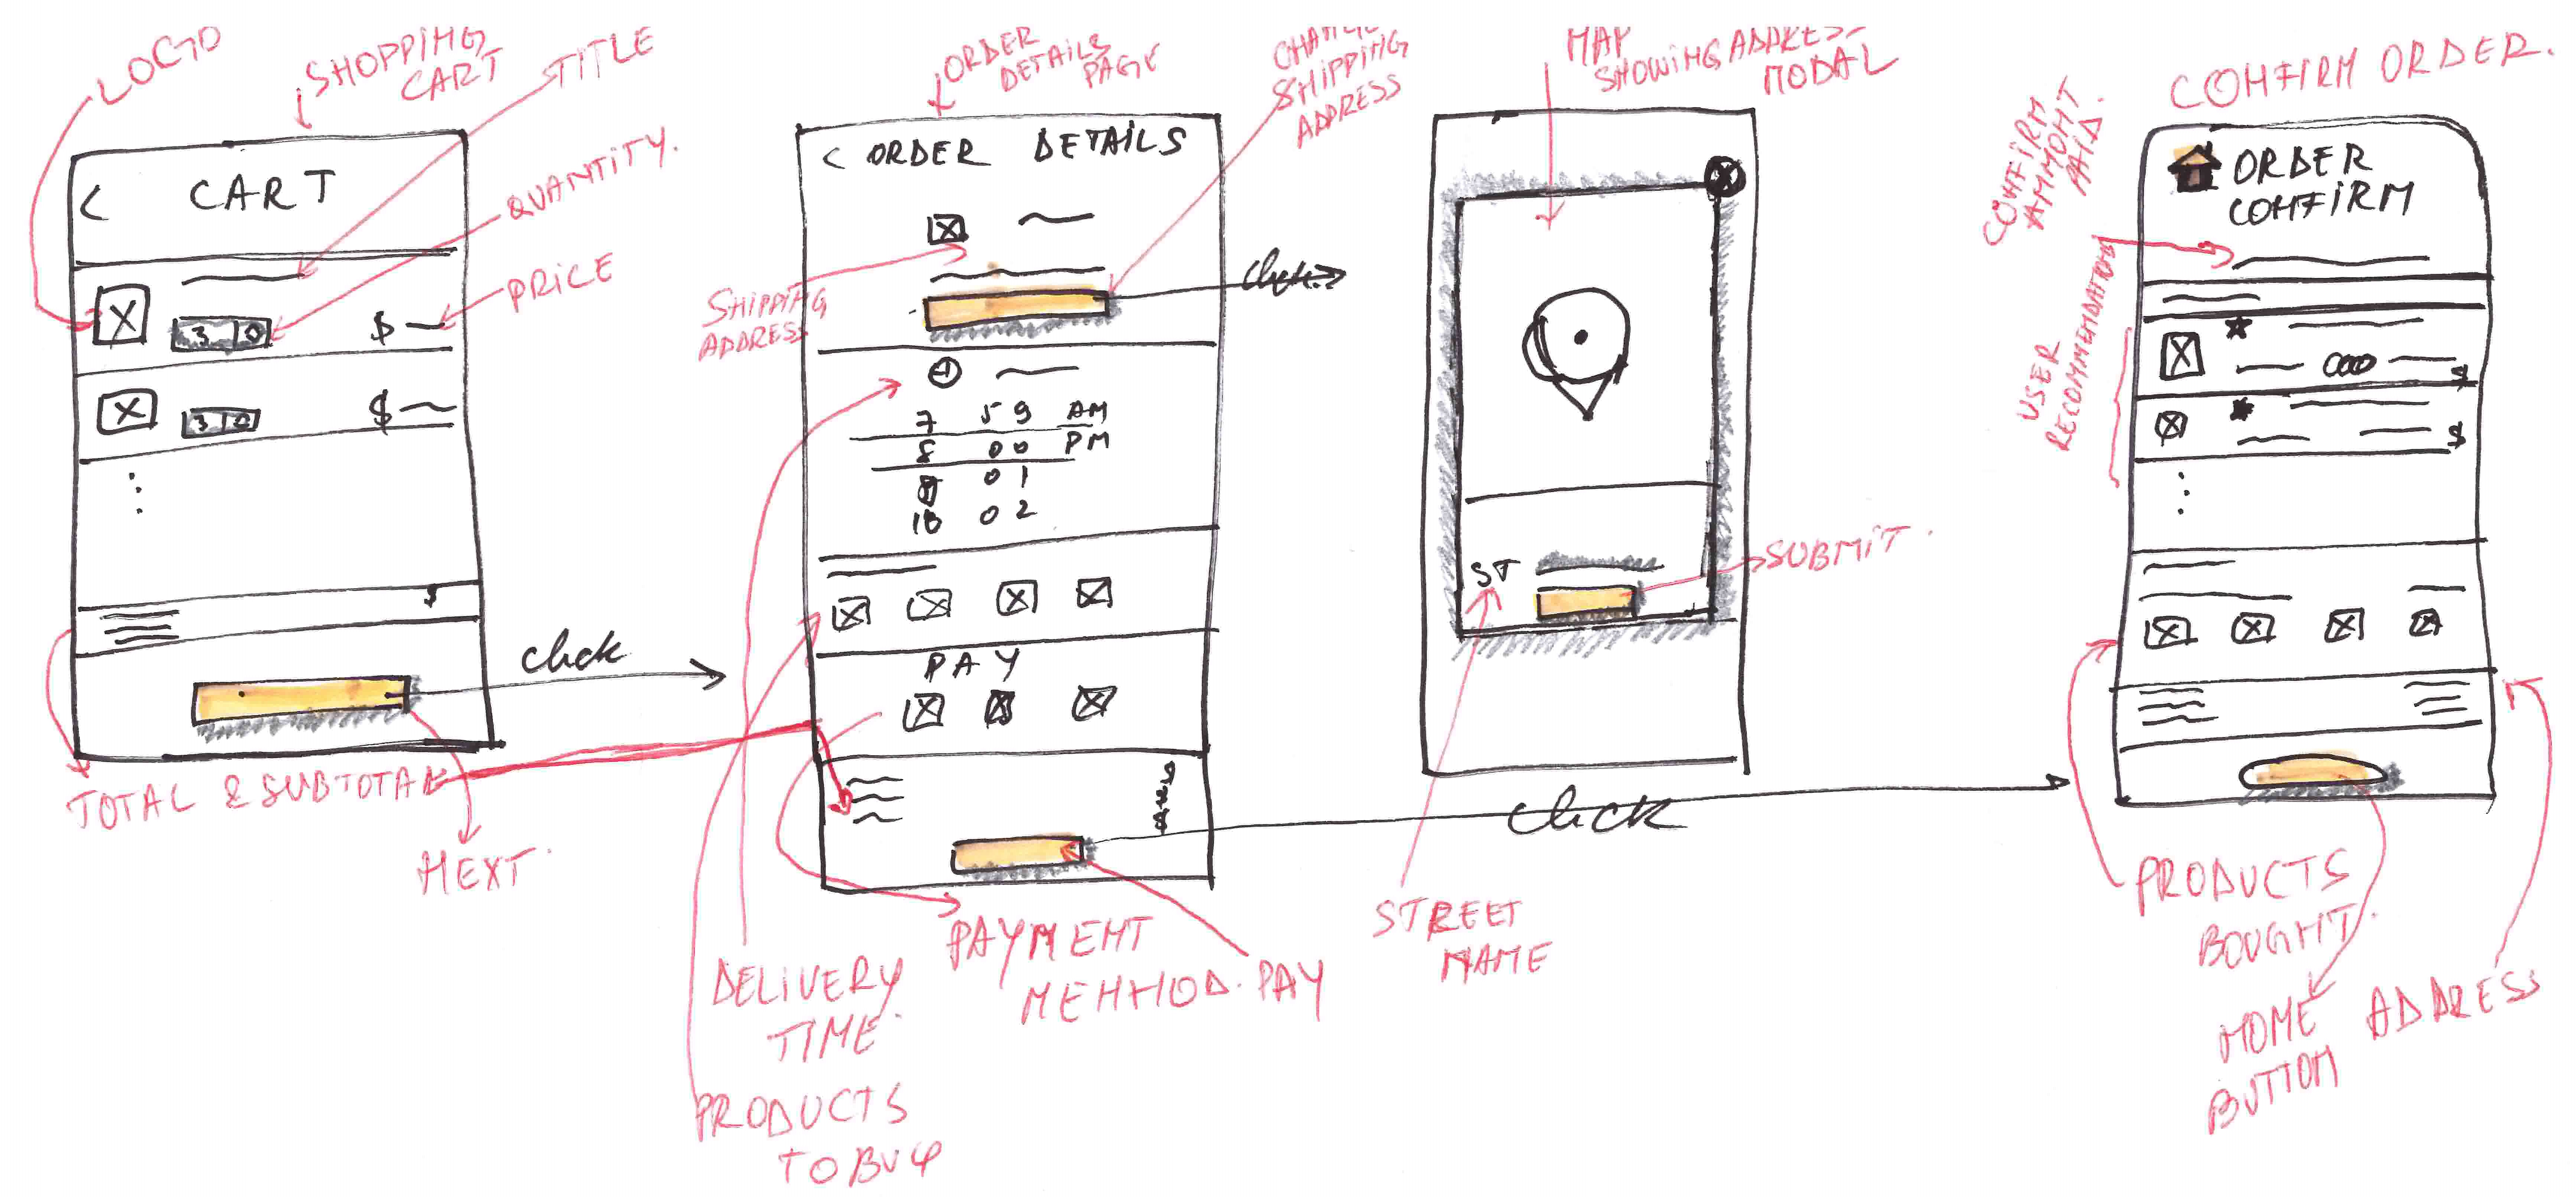 LOGO
SHOPPING
CART
TITLE
QUANTITY.
PRICE
< CART
3 0
$
3 0
$
$
click
TOTAL & SUBTOTAL
NEXT.
ORDER
DETAILS
PAGE
CHANGE
SHIPPING
ADDRESS
< ORDER DETAILS
SHIPPING
ADDRESS
click
7 59 AM
8 00 PM
9 01
10 02
PAY
DELIVERY
TIME.
PRODUCTS
TO BUY
PAYMENT
MEHHOD.
PAY
click
MAP
SHOWING ADDRES
MODAL
ST
SUBMIT.
STREET
NAME
CONFIRM ORDER.
CONFIRM
AMMONT
PAID.
ORDER
CONFIRM
USER
RECOMMENDATION
$
$
PRODUCTS
BOUGHT.
HOME
BUTTON
ADDRESS